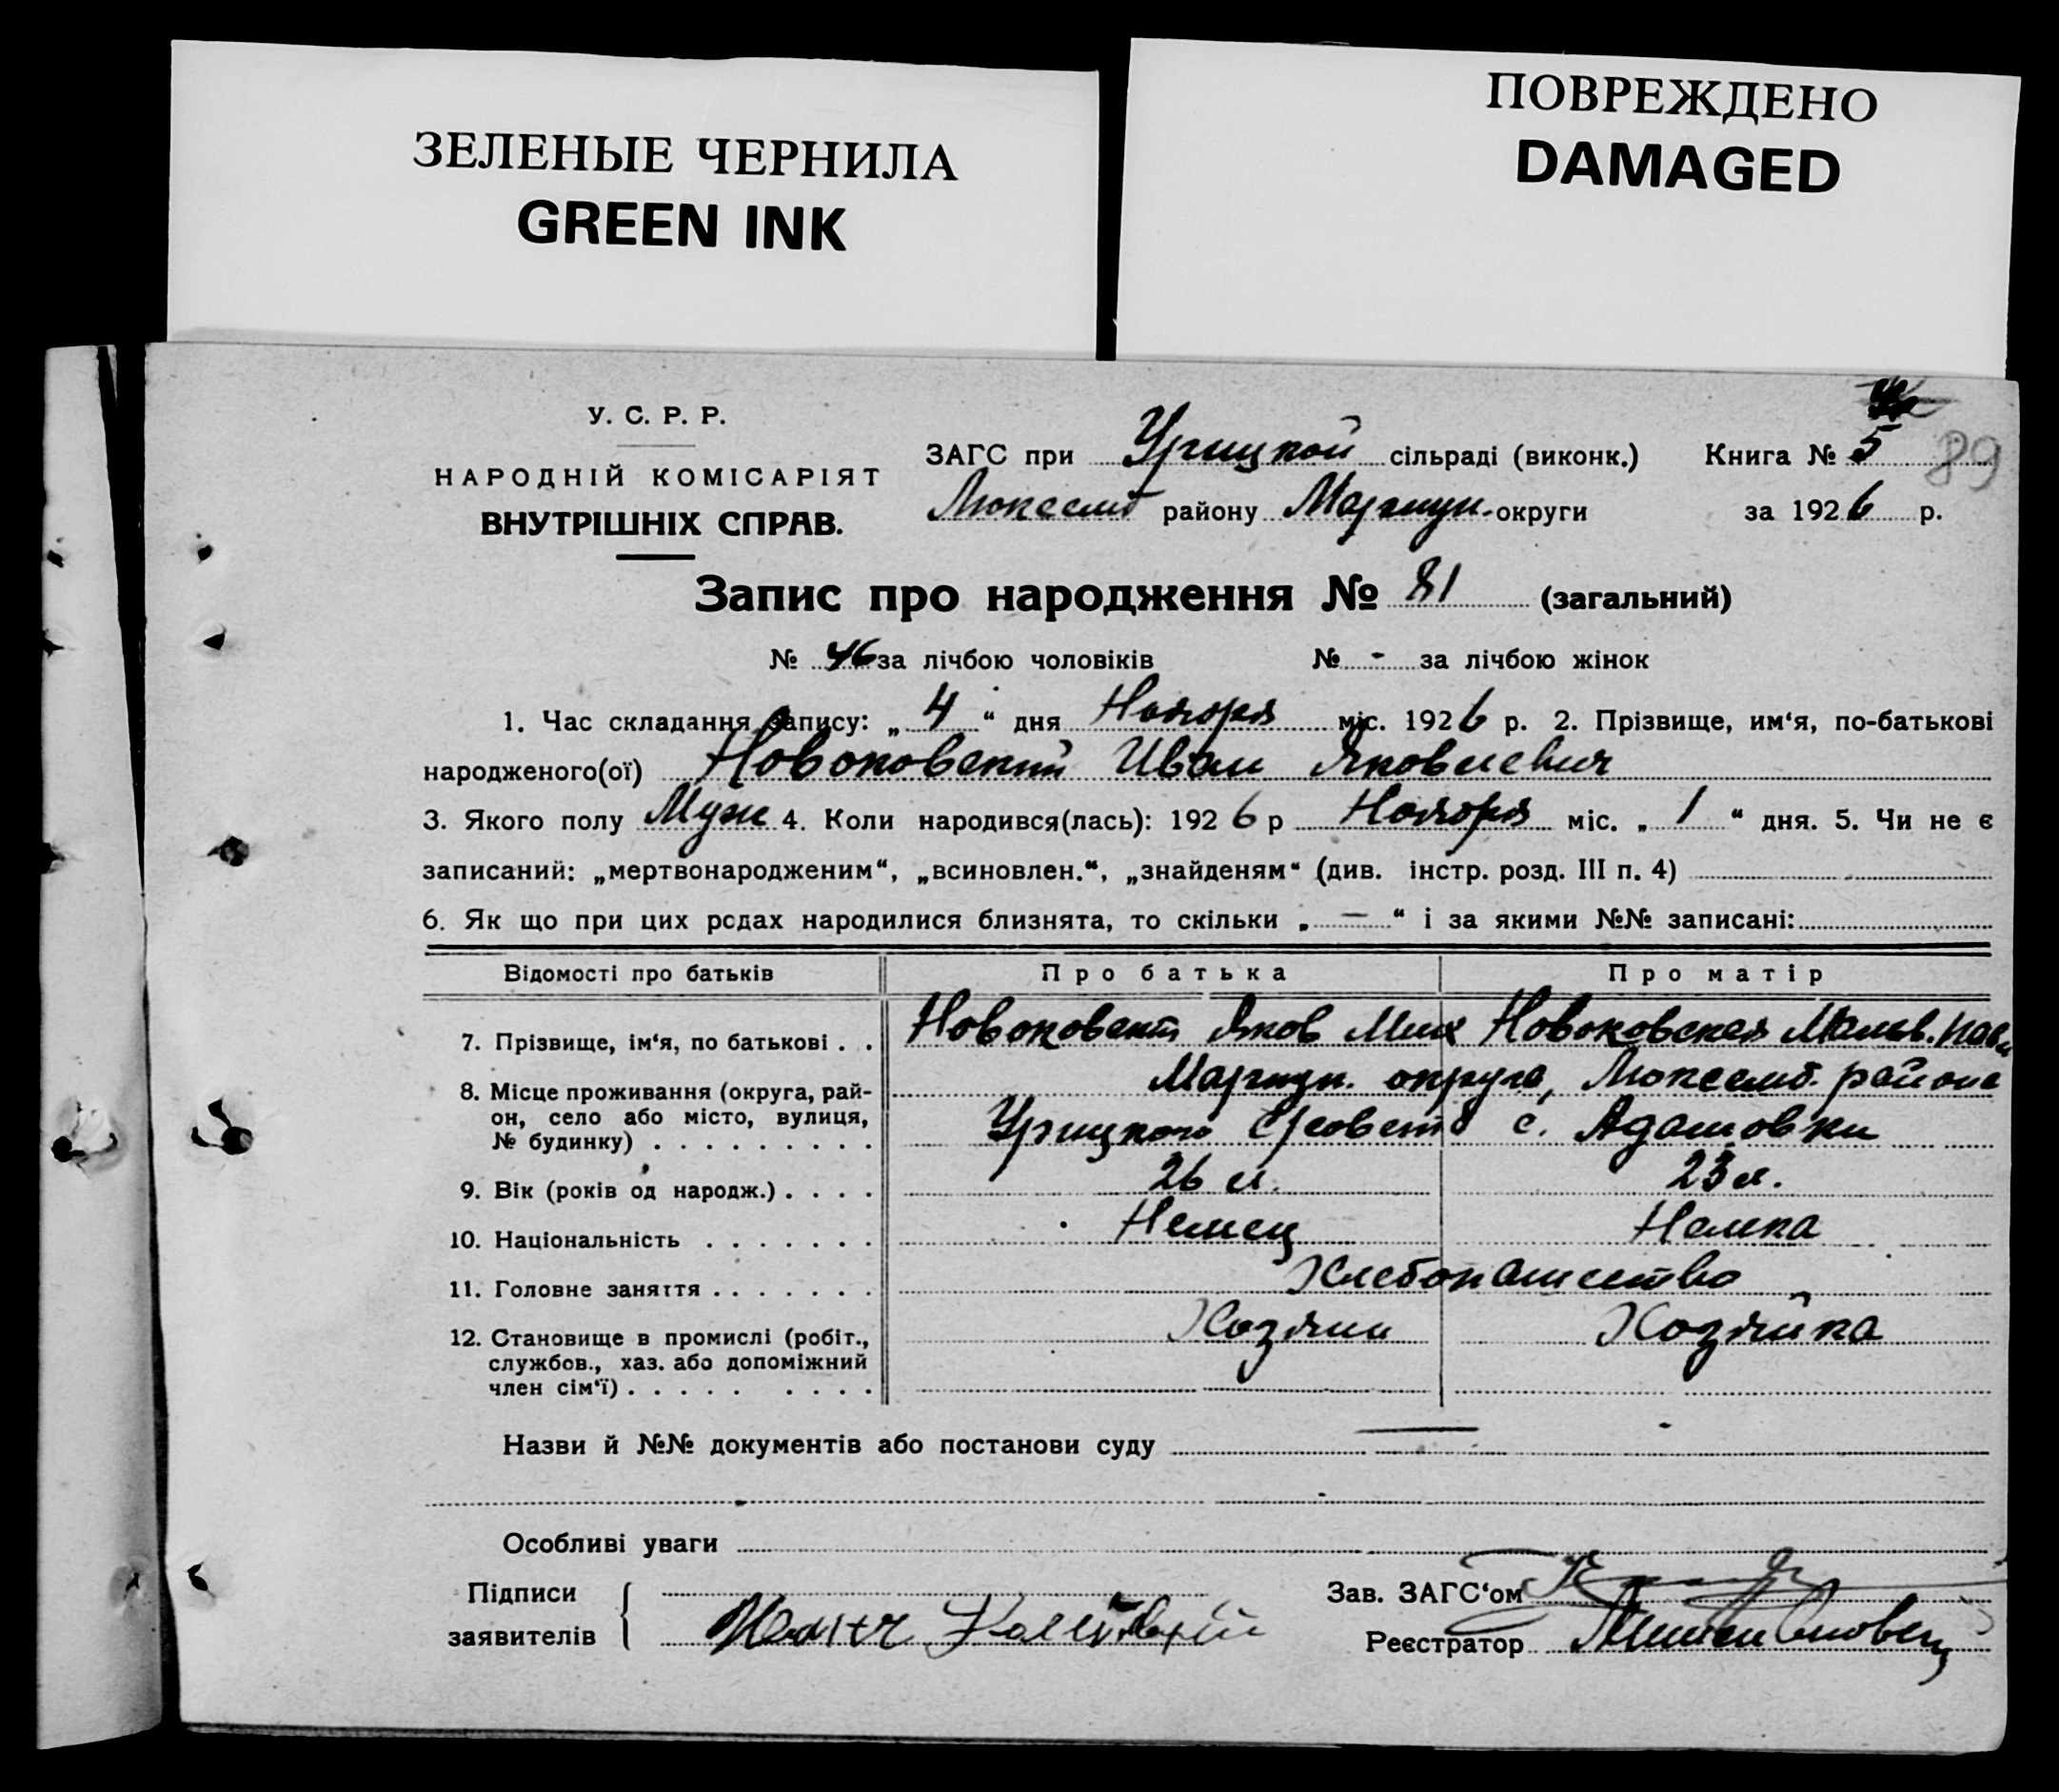 ЗЕЛЕНЫЕ ЧЕРНИЛА
GREEN INK
ПОВРЕЖДЕНО
DAMAGED
У. С. Р. Р.
НАРОДНІЙ КОМІСАРІЯТ
ВНУТРІШНІХ СПРАВ.
ЗАГС при Урицкой сільраді (виконк.) Книга № 5 89
Люксемб району Мариуп. округи за 1926 р.
Запис про народження № 81 (загальний)
№ 46 за лічбою чоловіків № - за лічбою жінок
1. Час складання запису: „ 4 “ дня Ноября міс. 1926 р. 2. Прізвище, им‘я, по-батькові
народженого(ої) Новоковский Иван Яковлевич
3. Якого полу Муж 4. Коли народився(лась): 1926 р Ноября міс. „ 1 “ дня. 5. Чи не є
записаний: „мертвонародженим“, „всиновлен.“, „знайденям“ (див. інстр. розд. III п. 4)
6. Як що при цих родах народилися близнята, то скільки „ — “ і за якими №№ записані:
Відомості про батьків Про батька Про матір
7. Прізвище, ім‘я, по батькові . . Новоковский Яков Мих Новоковская
8. Місце проживання (округа, рай- Мариуп. округа, Люксемб. района
он, село або місто, вулиця, Урицкого с. Адамовки
№ будинку) . . . . . . . . .
9. Вік (років од народж.) . . . . 26 л. 23 л.
10. Національність . . . . . . . Немец Немка
11. Головне заняття . . . . . . . Хлебопашество
12. Становище в промислі (робіт., Хозяин Хозяйка
службов., хаз. або допоміжний
член сім‘ї) . . . . . . . . .
Назви й №№ документів або постанови суду —
Особливі уваги
Підписи
заявителів
Зав. ЗАГС‘ом
Реєстратор